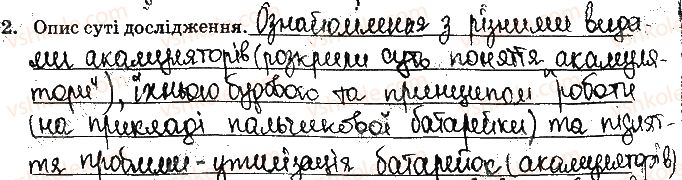 2. Опис суті дослідження. Ознайомлення з різними вида-
ми акамуляторів (розкрити суть поняття "акамуля-
тори"), їхньою будовою та принципом роботи
(на прикладі пальчикової батарейки) та піднят-
тя проблеми-утилізація батарейок (акамуляторів)